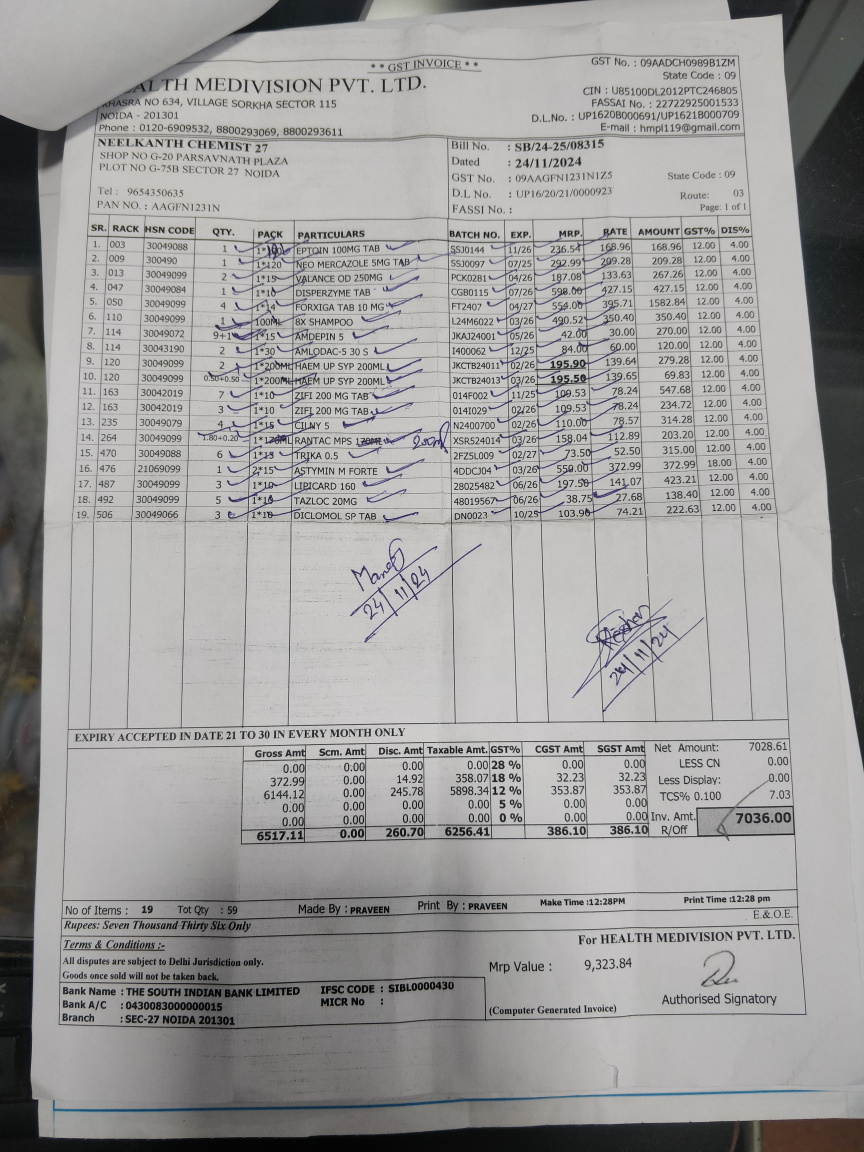 ** GST INVOICE **
GST No. : 09AADCH0989B1ZM
State Code : 09
EALTH MEDIVISION PVT. LTD.
CIN : U85100DL2012PTC246805
KHASRA NO 634, VILLAGE SORKHA SECTOR 115
FASSAI No. : 22722925001533
NOIDA - 201301
D.L.No. : UP1620B000691/UP1621B000709
Phone : 0120-6909532, 8800293069, 8800293611
E-mail : hmpl119@gmail.com
NEELKANTH CHEMIST 27
SHOP NO G-20 PARSAVNATH PLAZA
PLOT NO G-75B SECTOR 27 NOIDA
Tel : 9654350635
PAN NO. : AAGFN1231N
Bill No. : SB/24-25/08315
Dated : 24/11/2024
GST No. : 09AAGFN1231N1Z5 State Code : 09
D.L No. : UP16/20/21/0000923 Route: 03
FASSI No. : Page: 1 of 1
SR. RACK HSN CODE QTY. PACK PARTICULARS BATCH NO. EXP. MRP. RATE AMOUNT GST% DIS%
1. 003 30049088 1 EPTOIN 100MG TAB SSJ0144 11/26 236.54 168.96 168.96 12.00 4.00
2. 009 300490 1 1*120 NEO MERCAZOLE 5MG TAB SSJ0097 07/25 292.99 209.28 209.28 12.00 4.00
3. 013 30049099 2 1*15 VALANCE OD 250MG PCK0281 04/26 187.08 133.63 267.26 12.00 4.00
4. 047 30049084 1 1*10 DISPERZYME TAB CGB0115 07/26 598.00 427.15 427.15 12.00 4.00
5. 050 30049099 4 1*14 FORXIGA TAB 10 MG FT2407 04/27 554.00 395.71 1582.84 12.00 4.00
6. 110 30049099 1 100ML 8X SHAMPOO L24M6022 03/26 490.52 350.40 350.40 12.00 4.00
7. 114 30049072 9+1 1*15 AMDEPIN 5 JKAJ24001 05/26 42.00 30.00 270.00 12.00 4.00
8. 114 30043190 2 1*30 AMLODAC-5 30 S I400062 12/25 84.00 60.00 120.00 12.00 4.00
9. 120 30049099 2 1*200ML HAEM UP SYP 200ML JKCTB24011 02/26 195.90 139.64 279.28 12.00 4.00
10. 120 30049099 0.50+0.50 1*200ML HAEM UP SYP 200ML JKCTB24013 03/26 195.50 139.65 69.83 12.00 4.00
11. 163 30042019 7 1*10 ZIFI 200 MG TAB 014F002 11/25 109.53 78.24 547.68 12.00 4.00
12. 163 30042019 3 1*10 ZIFI 200 MG TAB 014I029 02/26 109.53 78.24 234.72 12.00 4.00
13. 235 30049079 4 1*15 CILNY 5 N2400700 02/26 110.00 78.57 314.28 12.00 4.00
14. 264 30049099 1.80+0.20 1*170ML RANTAC MPS 170ML 250ml XSR524014 03/26 158.04 112.89 203.20 12.00 4.00
15. 470 30049088 6 1*15 TRIKA 0.5 2FZ5L009 02/27 73.50 52.50 315.00 12.00 4.00
16. 476 21069099 1 2*15 ASTYMIN M FORTE 4DDCJ04 03/26 550.00 372.99 372.99 18.00 4.00
17. 487 30049099 3 1*10 LIPICARD 160 28025482 06/26 197.50 141.07 423.21 12.00 4.00
18. 492 30049099 5 1*10 TAZLOC 20MG 48019567 06/26 38.75 27.68 138.40 12.00 4.00
19. 506 30049066 3 1*10 DICLOMOL SP TAB DN0023 10/25 103.90 74.21 222.63 12.00 4.00
24/11/24
24/11/24
EXPIRY ACCEPTED IN DATE 21 TO 30 IN EVERY MONTH ONLY
Gross Amt Scm. Amt Disc. Amt Taxable Amt. GST% CGST Amt SGST Amt
0.00 0.00 0.00 0.00 28 % 0.00 0.00
372.99 0.00 14.92 358.07 18 % 32.23 32.23
6144.12 0.00 245.78 5898.34 12 % 353.87 353.87
0.00 0.00 0.00 0.00 5 % 0.00 0.00
0.00 0.00 0.00 0.00 0 % 0.00 0.00
6517.11 0.00 260.70 6256.41 386.10 386.10
Net Amount: 7028.61
LESS CN 0.00
Less Display: 0.00
TCS% 0.100 7.03
Inv. Amt. 7036.00
R/Off
No of Items : 19 Tot Qty : 59 Made By : PRAVEEN Print By : PRAVEEN Make Time :12:28PM Print Time :12:28 pm
Rupees: Seven Thousand Thirty Six Only
E.& O.E.
Terms & Conditions :-
All disputes are subject to Delhi Jurisdiction only.
Goods once sold will not be taken back.
For HEALTH MEDIVISION PVT. LTD.
Mrp Value : 9,323.84
Bank Name : THE SOUTH INDIAN BANK LIMITED IFSC CODE : SIBL0000430
Bank A/C : 0430083000000015 MICR No :
Branch : SEC-27 NOIDA 201301
(Computer Generated Invoice)
Authorised Signatory